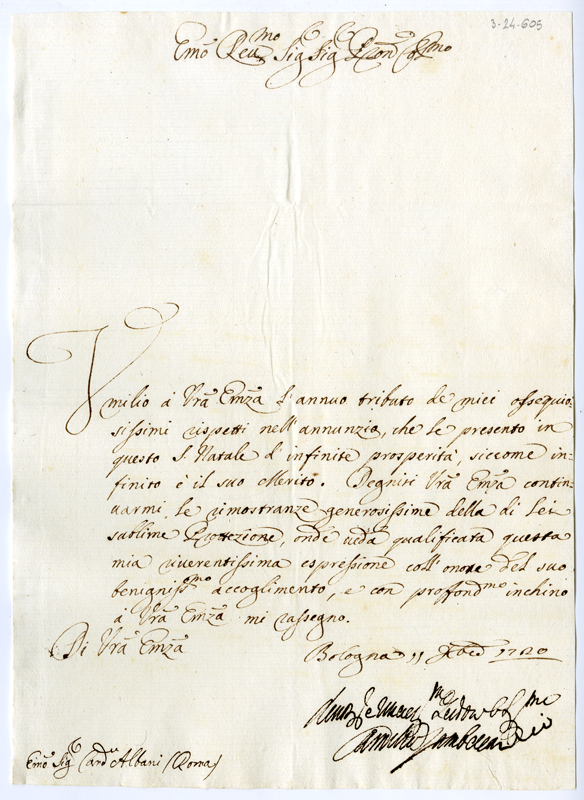 3-24-605
Emo Reumo Sig Sig Pron Colmo
Vmilio à Vrã Emza l'annuo tributo de miei ossequio-
sissimi rispetti nell'annunzio, che le presento in
questo S. Natale d'infinite prosperità, siccome in-
finito è il suo Merito. Degnisi Vrã Emza contin-
uarmi le rimostranze generosissime della di Lei
sublime Protezione, onde ueda qualificata questa
mia riuerentissima espressione coll'onore del suo
benignissmo accoglimento, e con proffondmo inchino
à Vrã Emza mi rassegno.
Di Vrã Emza
Bologna 11 Xbre 1720
Emo Sig Card Albani (Roma)